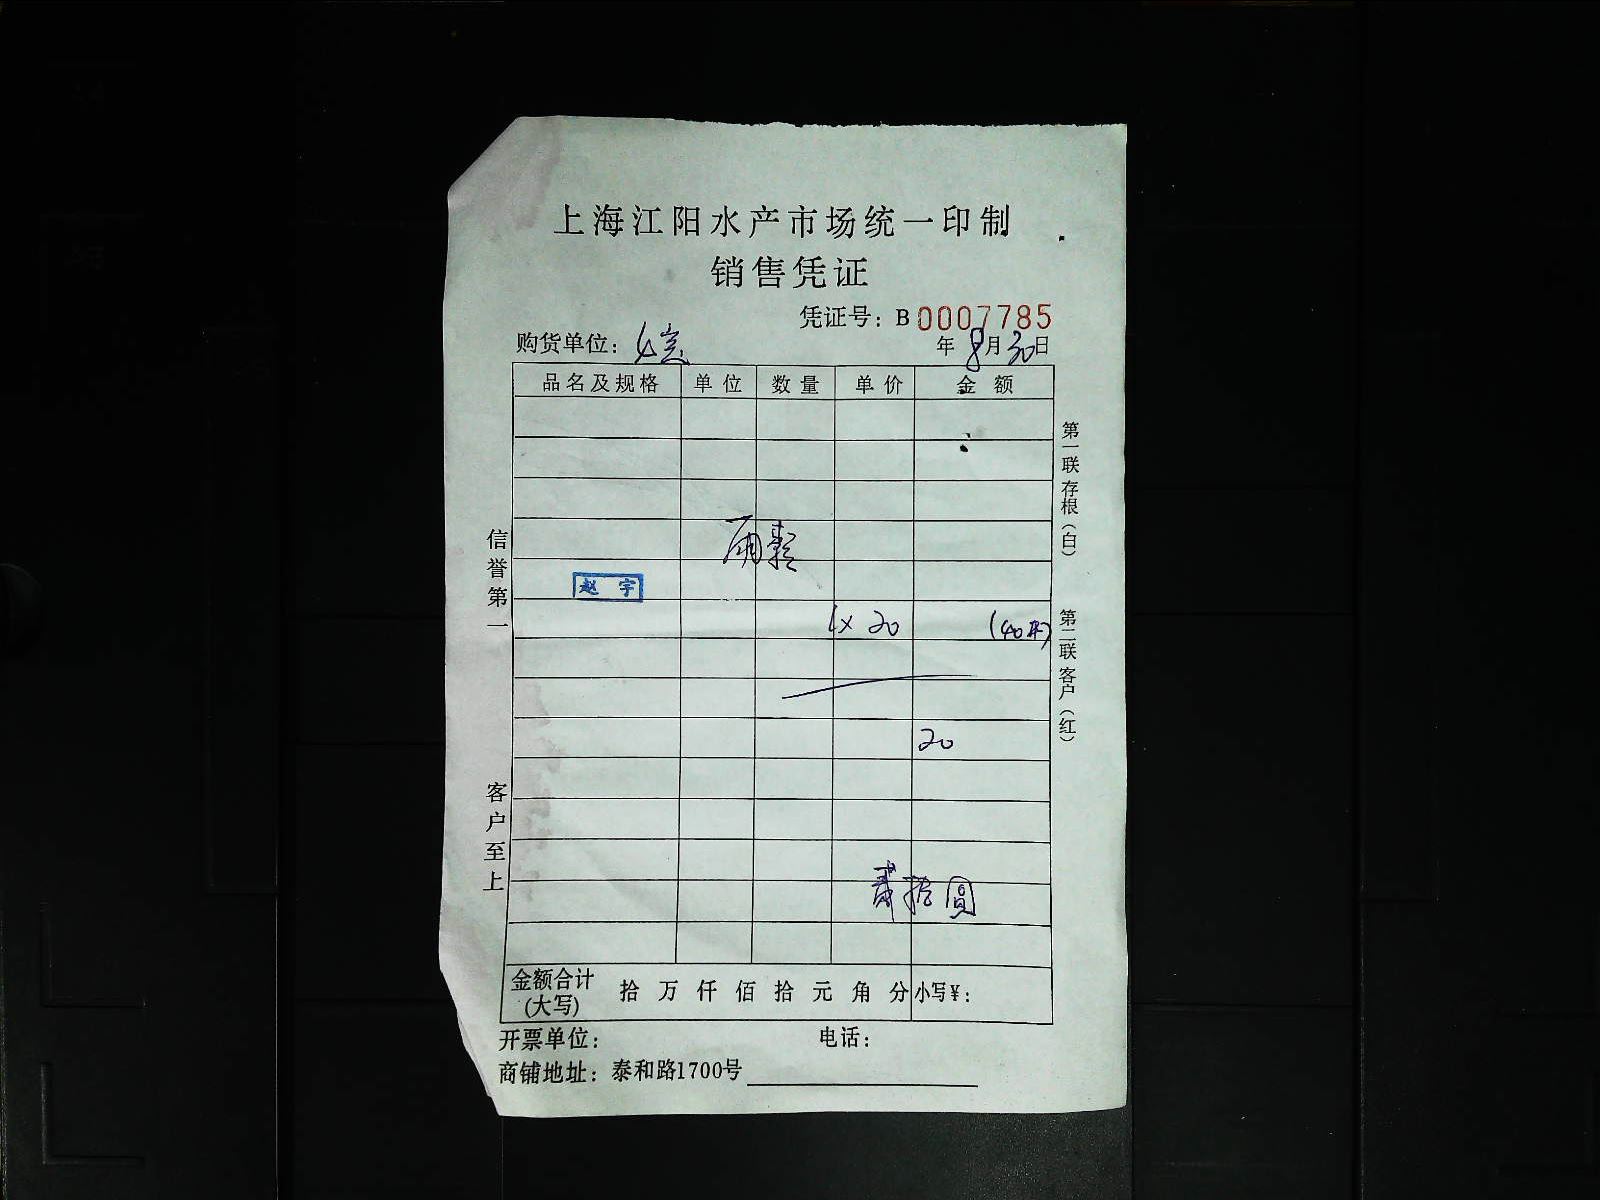 上海江阳水产市场统一印制
销售凭证
凭证号：B0007785
购货单位：
年8月30日
品名及规格 单位 数量 单价 金额
赵宇
1×20
20
贰拾圆
金额合计(大写) 拾 万 仟 佰 拾 元 角 分 小写¥：
开票单位： 电话：
商铺地址：泰和路1700号
信誉第一
客户至上
第一联存根（白）
第二联客户（红）